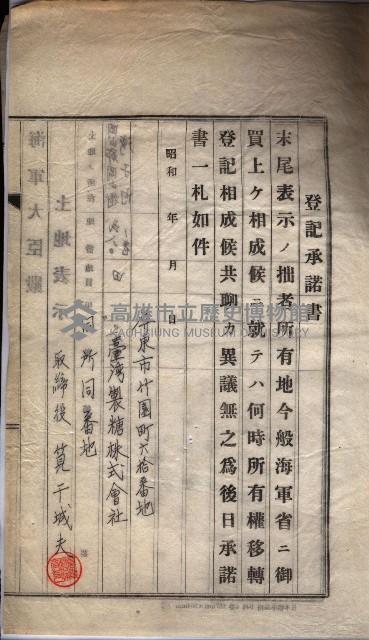 登記承諾書
末尾表示ノ拙者所有地今般海軍省ニ御
買上ケ相成候ニ就テハ何時所有權移轉
登記相成候共聊カ異議無之爲後日承諾
書一札如件
昭和　年　月　日
東市竹園町六拾番地
臺灣製糖株式會社
同所同番地
取締役　筧干城夫
土地表示
海軍大臣殿
高雄市立歷史博物館
KAOHSIUNG MUSEUM OF HISTORY